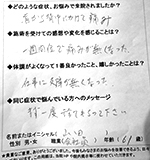 ◆どのような症状、お悩みで来院されましたか?
首から背中にかけて痛み
◆施術を受けての感想や変化を感じることは?
一回の施術で痛みが無くなった
◆体調がよくなって1番良かったこと、嬉しかったことは?
仕事に支障が無くなった
◆同じ症状で悩んでいる方へのメッセージ
様一度
下さい
名前またはイニシャル(
性別 男・女 職業(会社員) 年齢(